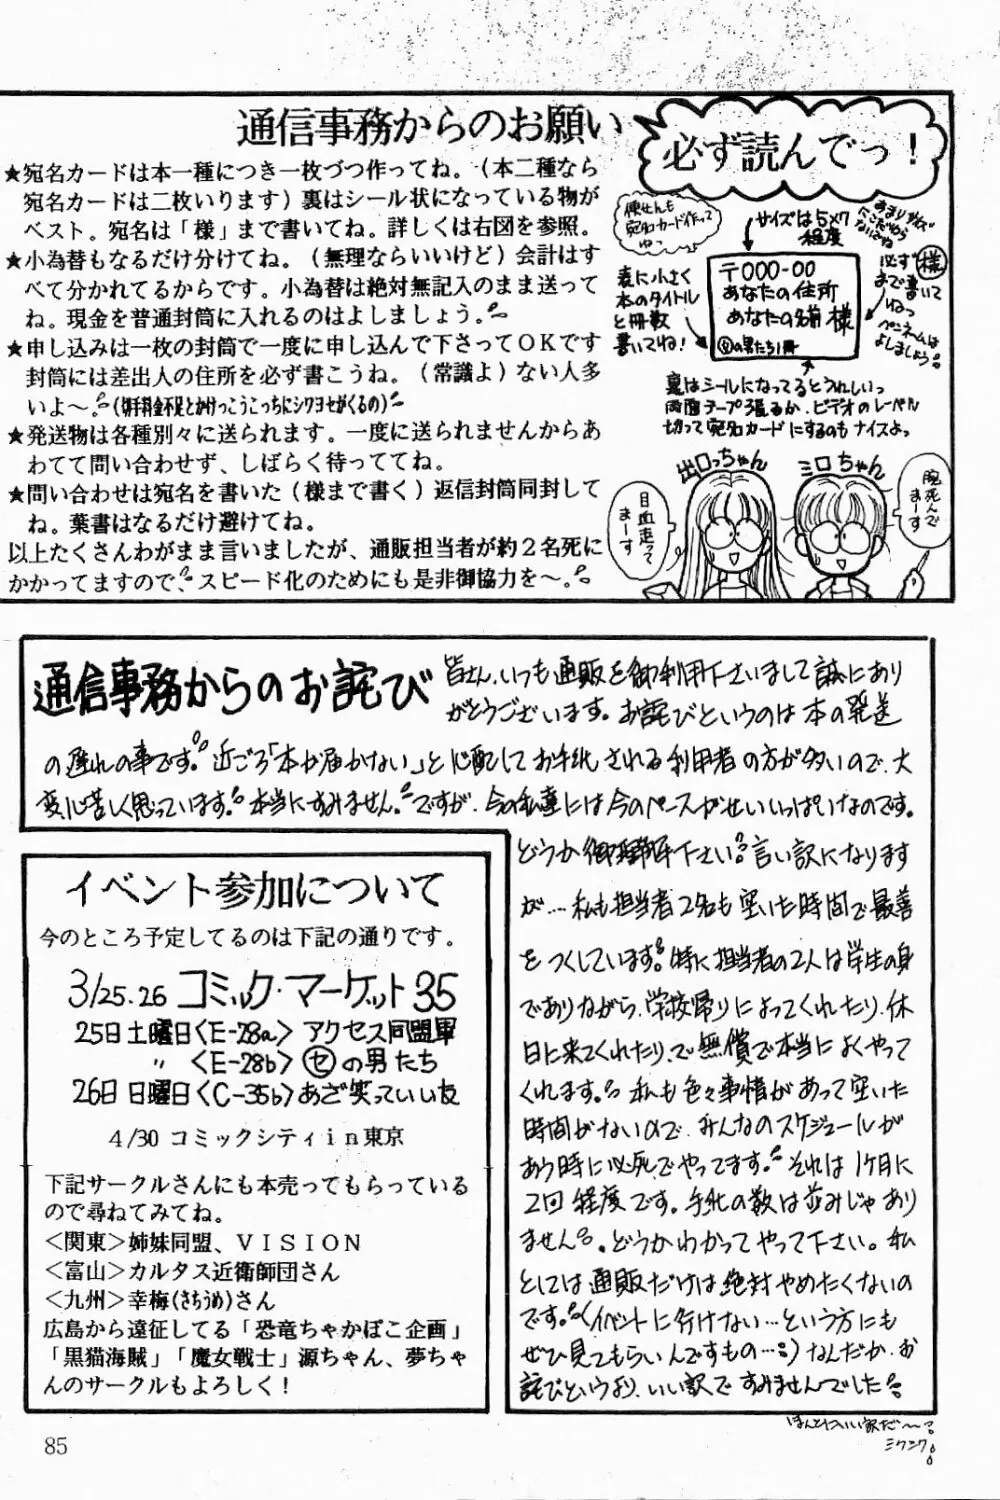 通信事務からのお願い
必ず読んでっ！
★宛名カードは本一種につき一枚づつ作ってね。（本二種なら
宛名カードは二枚いります）裏はシール状になっている物が
ベスト。宛名は「様」まで書いてね。詳しくは右図を参照。
★小為替もなるだけ分けてね。（無理ならいいけど）会計はす
べて分かれてるからです。小為替は絶対無記入のまま送って
ね。現金を普通封筒に入れるのはよしましょう。
★申し込みは一枚の封筒で一度に申し込んで下さってＯＫです
封筒には差出人の住所を必ず書こうね。（常識よ）ない人多
いよ〜。（切手料金不足とかけっこうこっちにシワヨセがくるの）
★発送物は各種別々に送られます。一度に送られませんからあ
わてて問い合わせず、しばらく待っててね。
★問い合わせは宛名を書いた（様まで書く）返信封筒同封して
ね。葉書はなるだけ避けてね。
以上たくさんわがまま言いましたが、通販担当者が約２名死に
かかってますので、スピード化のためにも是非御協力を〜。
便せんも
宛名カード作って
ねっ
サイズは5×7
程度
必ず様
まで書いて
ねっ
ペンネームは
よしましょう
表に小さく
本のタイトル
と冊数
書いてね！
〒000-00
あなたの住所
あなたの名前 様
㋝の男たち1冊
裏はシールになってるとうれしいっ
両面テープ張るか、ビデオのレーベル
切って宛名カードにするのもナイスよっ
出口っちゃん
ミロちゃん
目血走って
まーす
腕死んで
まーす
通信事務からのお詫び
皆さん、いつも通販を御利用下さいまして誠にあり
がとうございます。お詫びというのは本の発送
の遅れの事です。近ごろ「本が届かない」と心配してお手紙される利用者の方が多いので、大
変心苦しく思っています。本当にすみません。ですが、今の私達には今のペースがせいいっぱいなのです。
どうか御理解下さい。言い訳になります
が…私も担当者2名も空いた時間で最善
をつくしています。特に担当者の2人は学生の身
でありながら、学校帰りによってくれたり、休
日に来てくれたり、で無償で本当によくやって
くれます。私も色々事情があって空いた
時間がないので、みんなのスケジュールが
あう時に必死でやってます。それは1ヶ月に
2回程度です。手紙の数は並みじゃあり
ません。どうかわかってやって下さい。私
としては通販だけは絶対やめたくないの
です。（イベントに行けない…という方にも
ぜひ見てもらいんですもの…）なんだか、お
詫びというより、いい訳ですみませんでした
ほんとにいい訳だ〜
ミクンク
イベント参加について
今のところ予定してるのは下記の通りです。
3/25.26 コミック・マーケット35
25日土曜日〈E-28a〉アクセス同盟軍
〃〈E-28b〉㋝の男たち
26日日曜日〈C-35b〉あざ笑っていい友
４/30 コミックシティｉｎ東京
下記サークルさんにも本売ってもらっている
ので尋ねてみてね。
＜関東＞姉妹同盟、ＶＩＳＩＯＮ
＜富山＞カルタス近衛師団さん
＜九州＞幸梅（さちうめ）さん
広島から遠征してる「恐竜ちゃかぽこ企画」
「黒猫海賊」「魔女戦士」源ちゃん、夢ちゃ
んのサークルもよろしく！
85